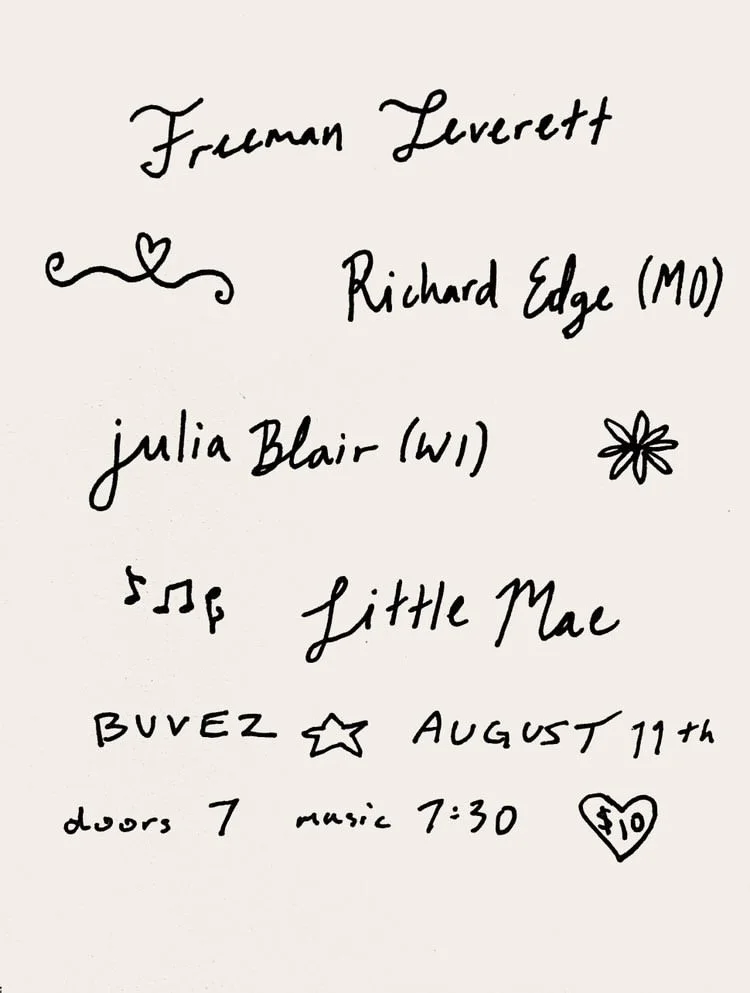 Freeman Leverett
Richard Edge (MO)
julia Blair (WI)
Little Mae
BUVEZ AUGUST 11th
doors 7 music 7:30 $10